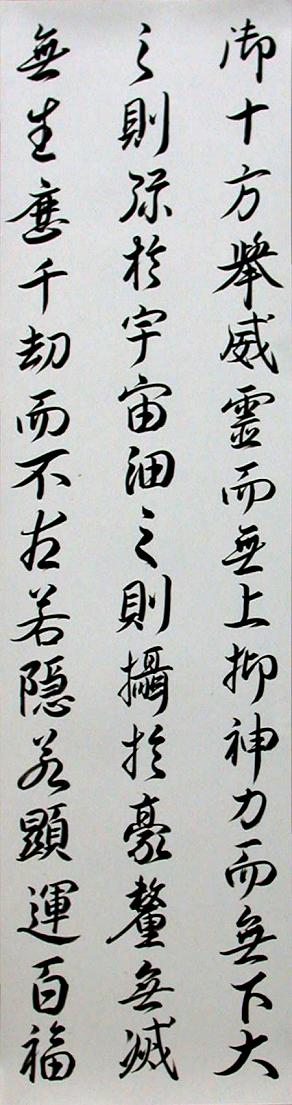 御十方舉威靈而無上抑神力而無下大
之則彌於宇宙細之則攝於豪釐無滅
無生歷千劫而不古若隱若顯運百福